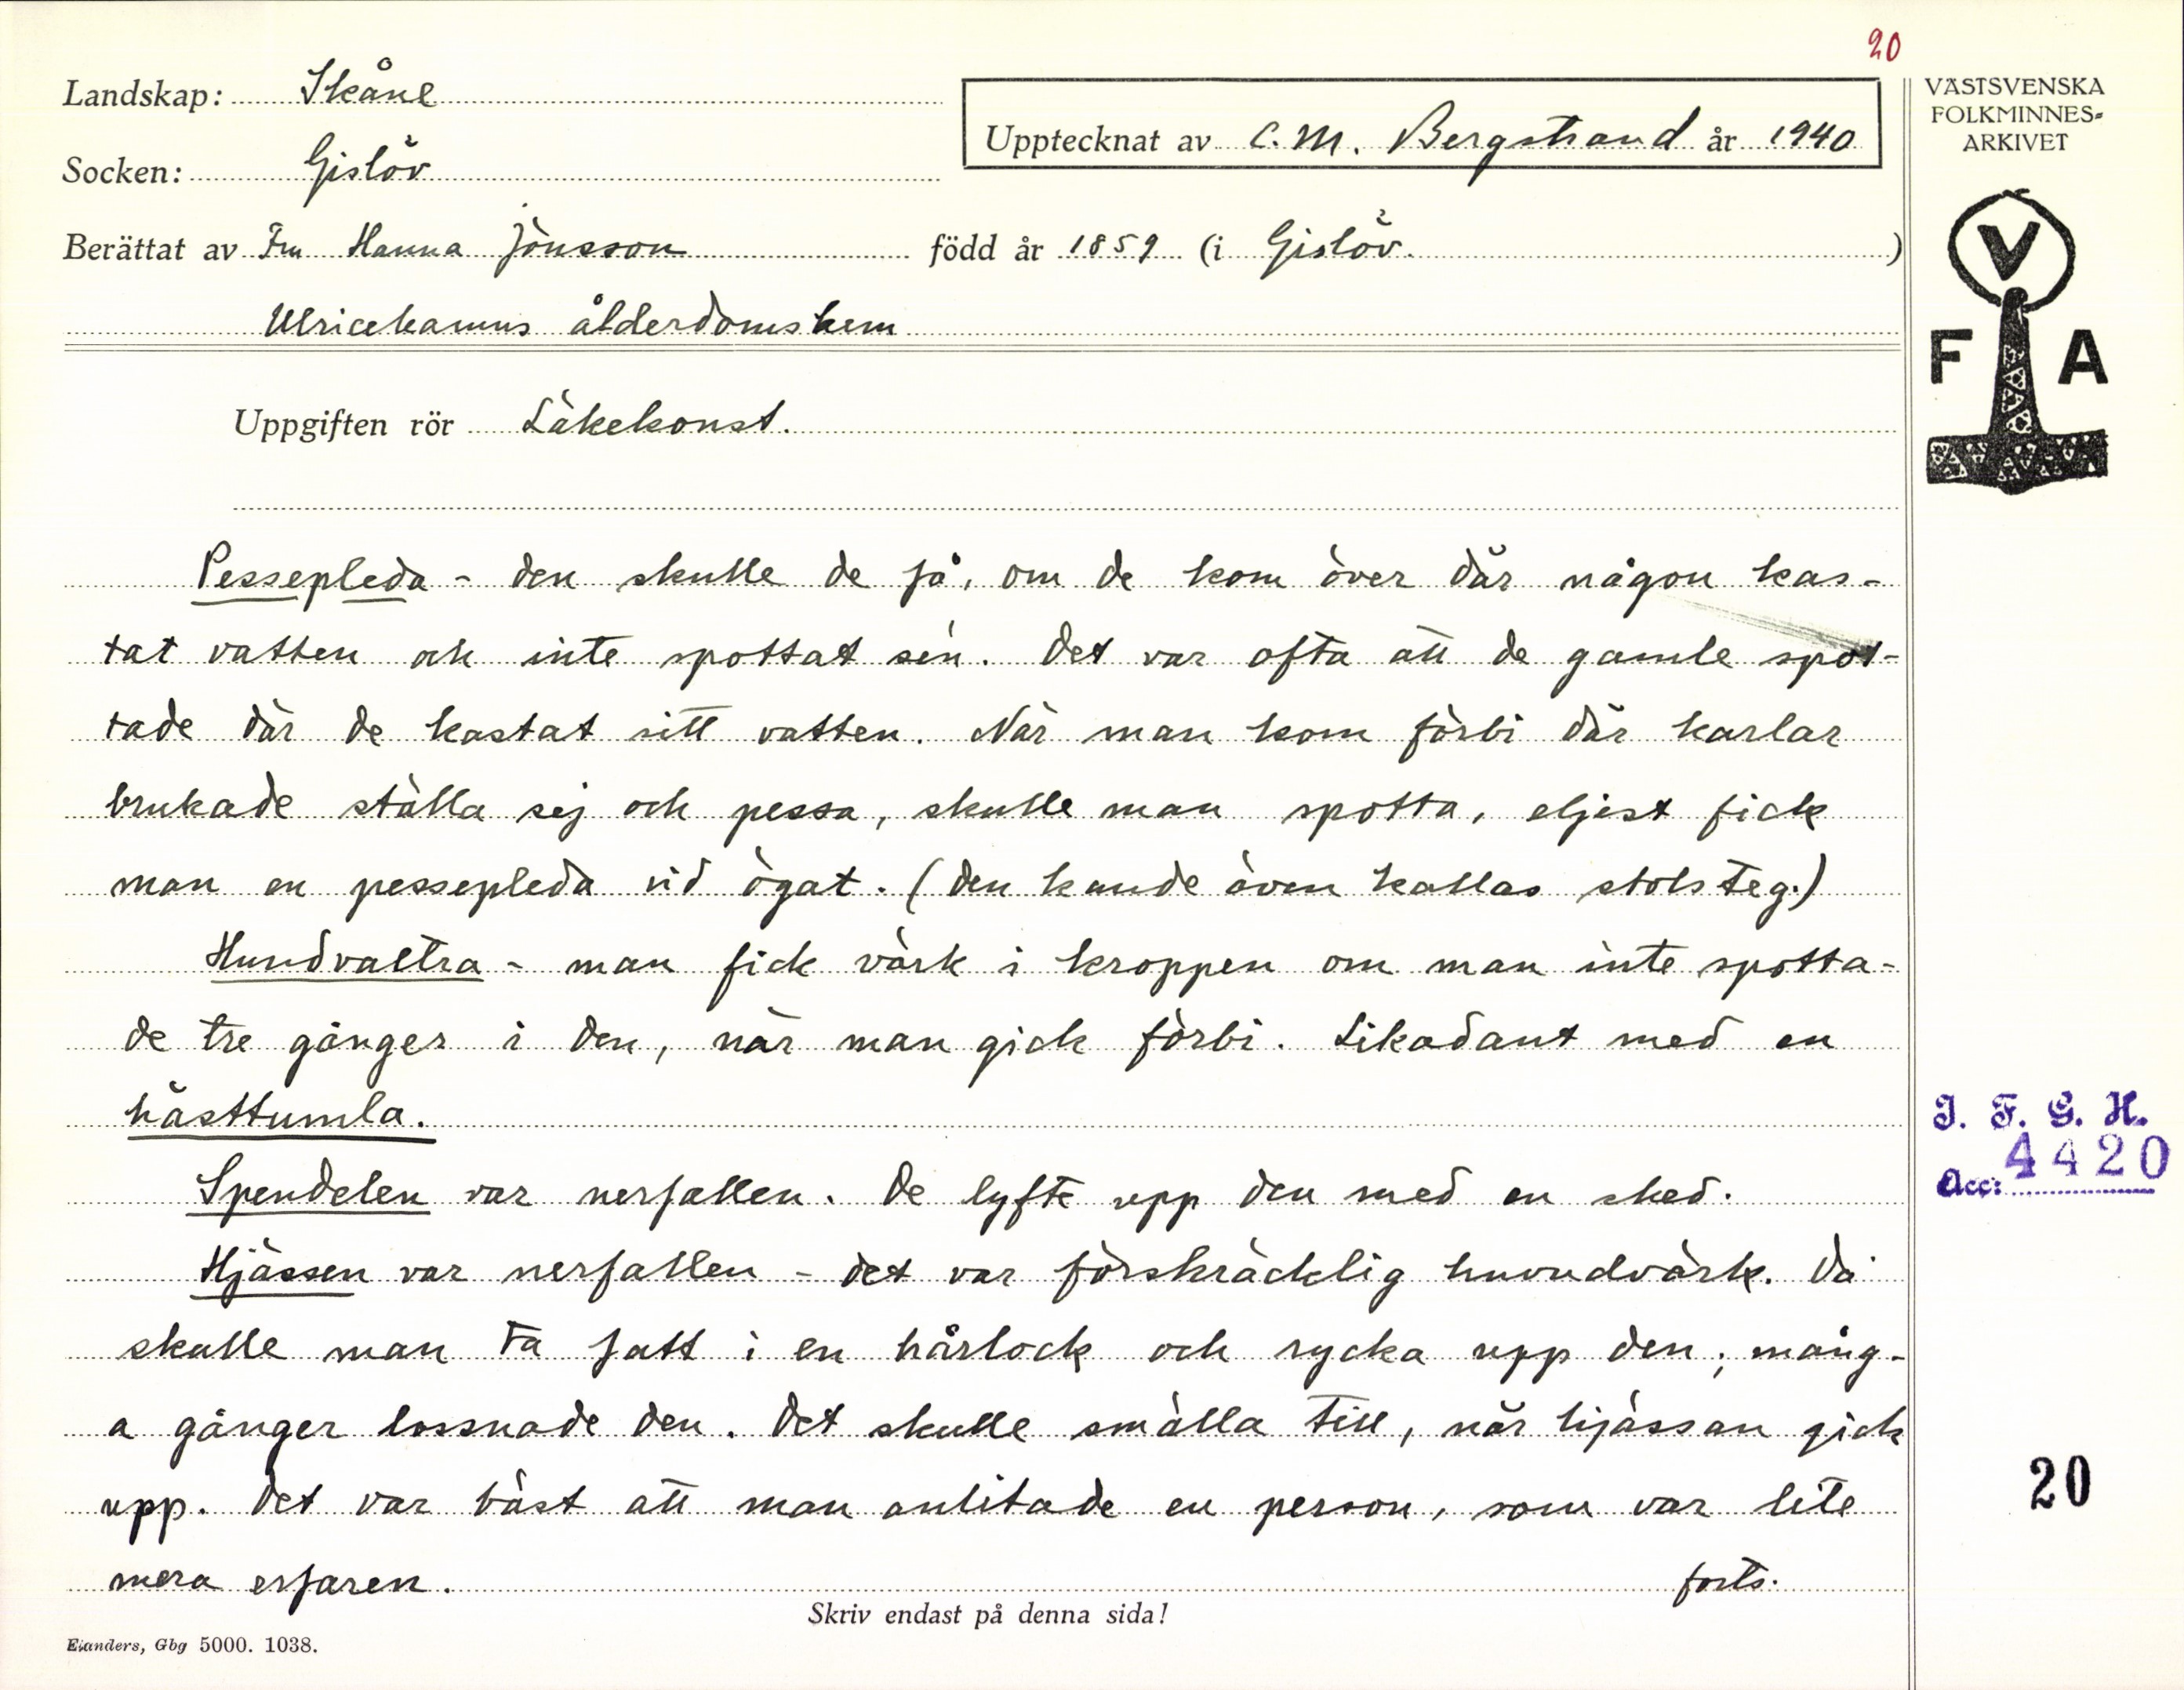 20
Landskap: Skåne
Upptecknat av C. M. Bergstrand år 1940
Socken: Gislöv
Berättat av Fru Hanna Jönsson född år 1859 (i Gislöv.)
Ulricehamns ålderdomshem
VÄSTSVENSKA
FOLKMINNES=
ARKIVET
V
F A
Uppgiften rör Läkekonst.
Pessepleda - den skulle de få, om de kom över där någon kas-
tat vatten och inte spottat sén. Det var ofta att de gamle spot-
tade där de kastat sitt vatten. När man kom förbi där karlar
brukade ställa sej och pessa, skulle man spotta, eljest fick
man en pessepleda vid ögat. (Den kunde även kallas stolsteg.)
Hundvaltra - man fick värk i kroppen om man inte spotta-
de tre gånger i den, när man gick förbi. Likadant med en
hästtumla.
Spendelen var nerfallen. De lyfte upp den med en sked.
Hjässen var nerfallen - det var förskräcklig huvudvärk. Då
skulle man ta fatt i en hårlock och rycka upp den; mång-
a gånger lossnade den. Det skulle smälla till, när hjässan gick
upp. Det var bäst att man anlitade en person, som var lite
mera erfaren. forts.
Skriv endast på denna sida!
Elanders, Gbg 5000. 1038.
I. F. G. H.
Acc: 4420
20